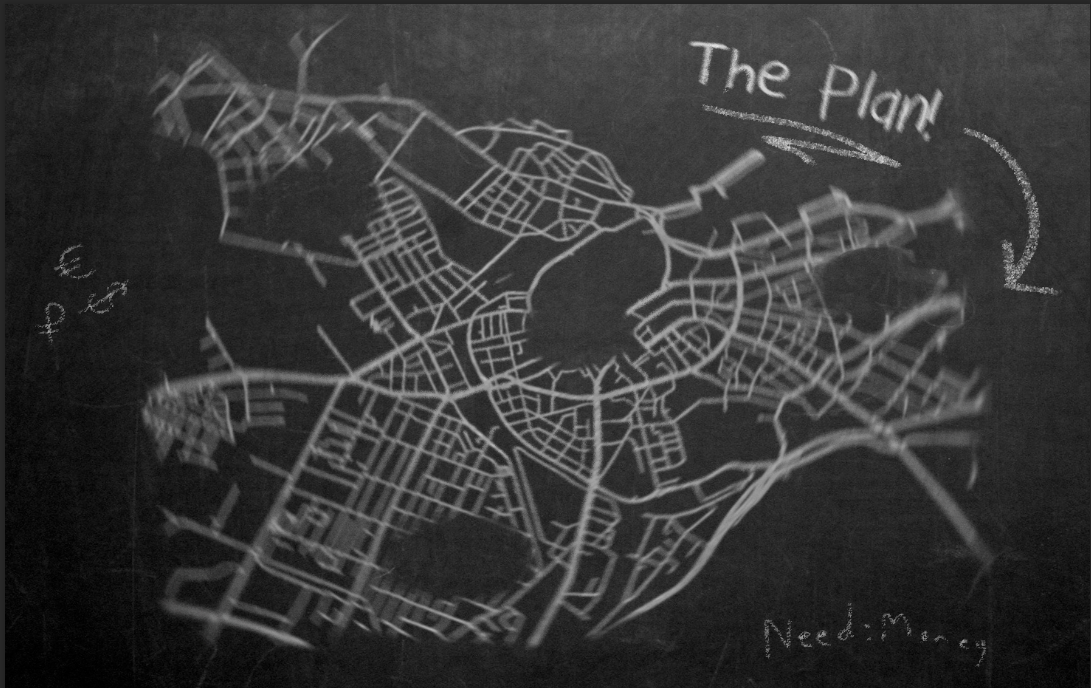 The Plan!
Need: Money